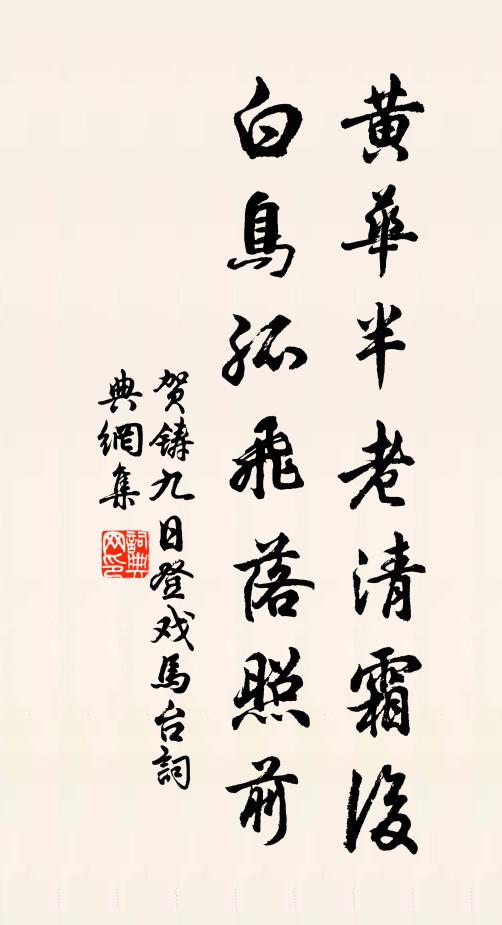 黃華半老清霜後
白鳥孤飛落照前
贺鑄九日登戏馬台詞
典網集
詞典网印